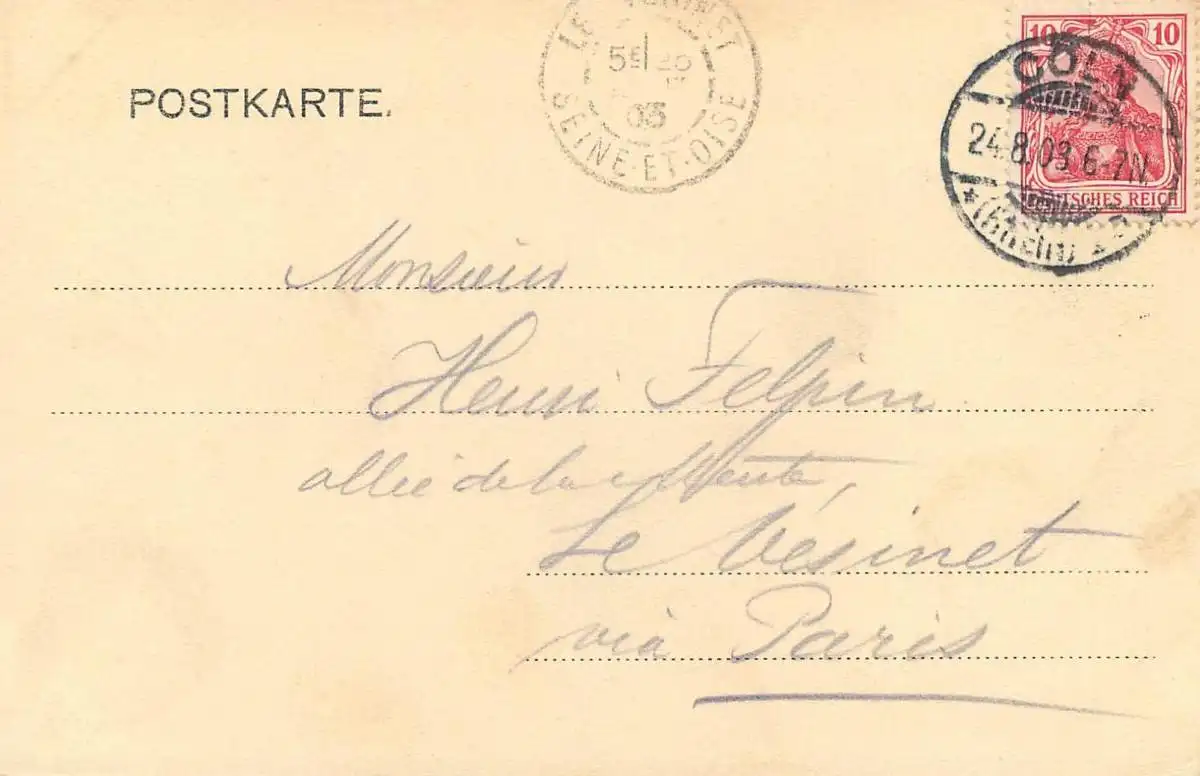 POSTKARTE.
SEINE-ET-OISE
5E
03
10 10
DEUTSCHES REICH
CÖLN
24.8.03 6-7N.
* (Rhein) *
Monsieur
Henri Felpin
allée de la Meute,
Le Vésinet
via Paris